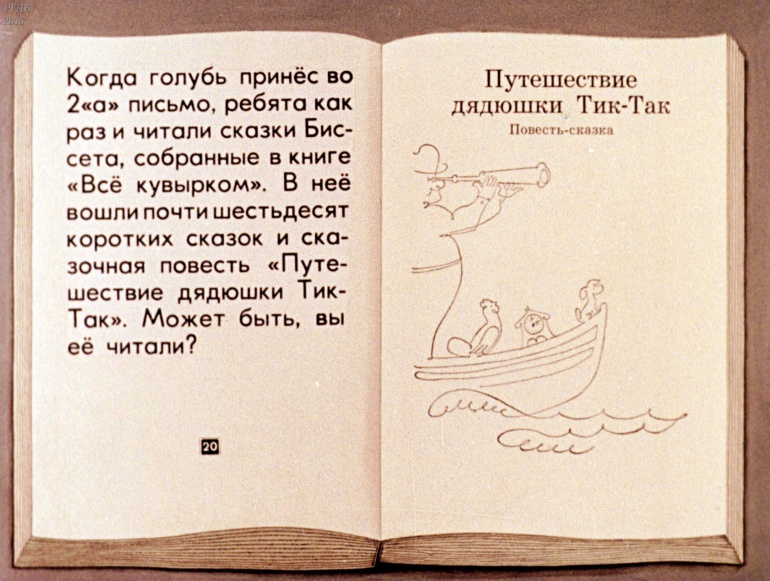 РГДБ
2015
Когда голубь принёс во
2«а» письмо, ребята как
раз и читали сказки Бис-
сета, собранные в книге
«Всё кувырком». В неё
вошли почти шестьдесят
коротких сказок и ска-
зочная повесть «Путе-
шествие дядюшки Тик-
Так». Может быть, вы
её читали?
20
Путешествие
дядюшки Тик-Так
Повесть-сказка